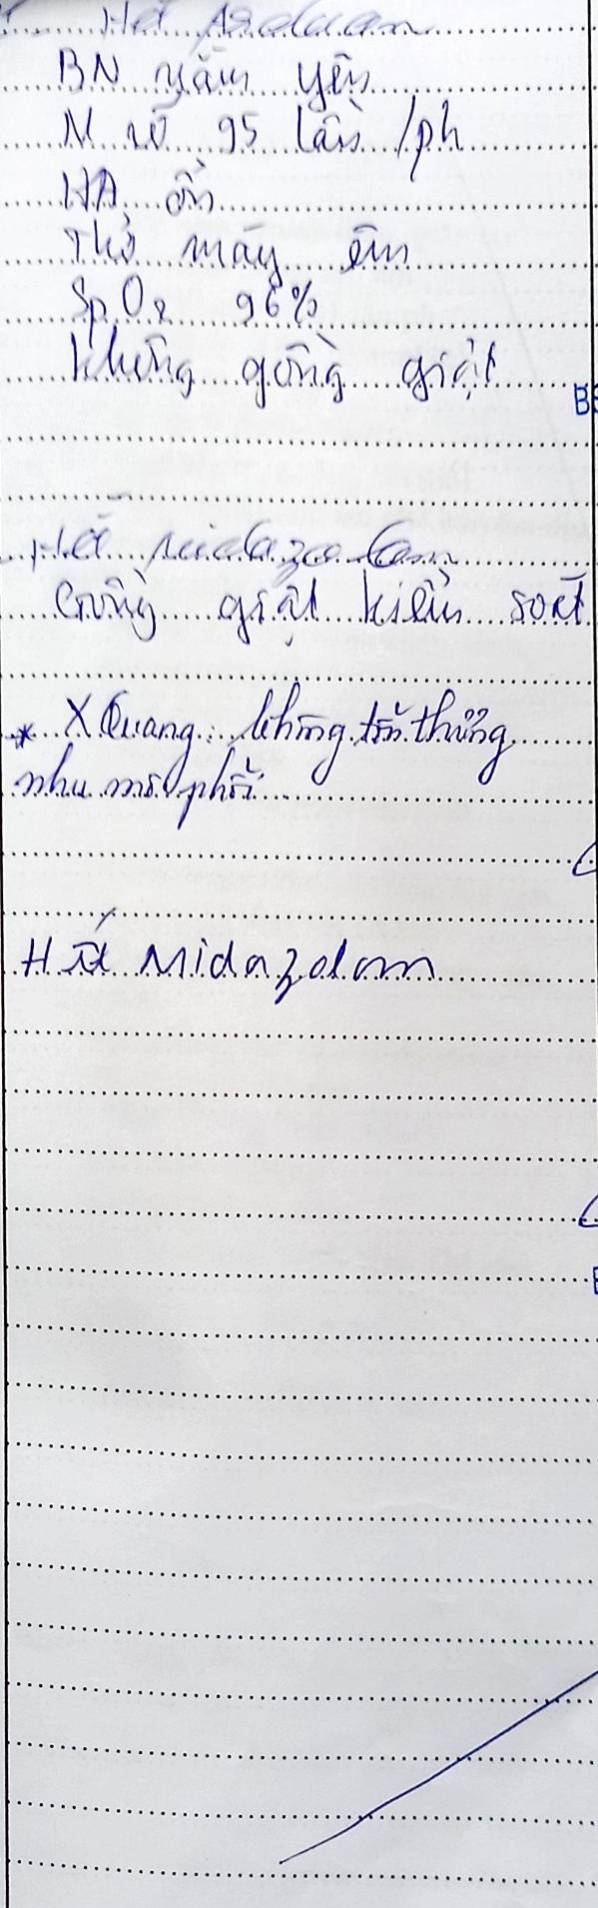 Hết Arduan
BN nằm yên
M rõ 95 lần/ph
HA ổn
Thở máy êm
SpO2 96%
không gồng giật
Hết Midazolam
Gồng giật kiểm soát
* X Quang: không tổn thương
nhu mô phổi
Hết Midazolam